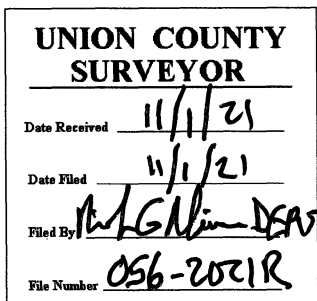 UNION COUNTY
SURVEYOR
Date Received 11/1/21
Date Filed 11/1/21
Filed By
File Number 056-2021R